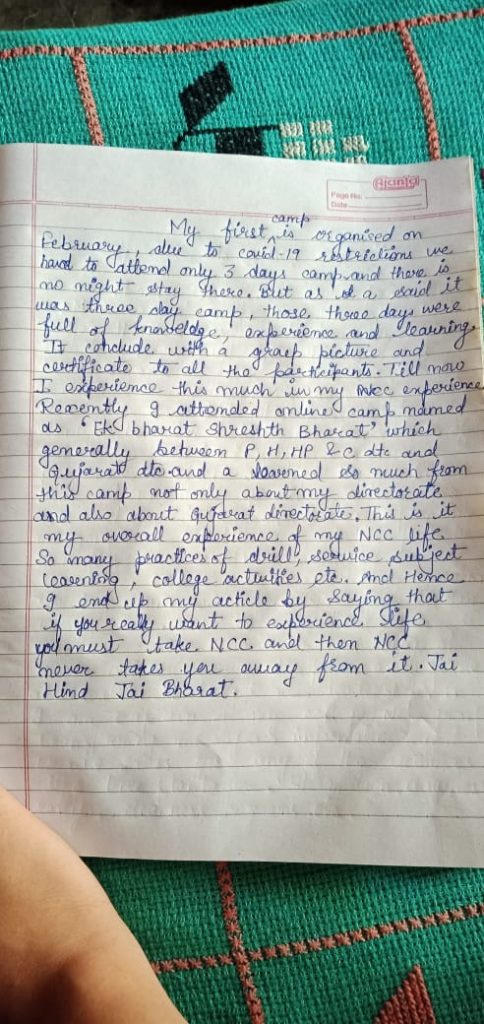 Ajanta
Page No.
Date
camp
My first ^ is organised on
February, due to covid-19 restrictions we
have to attend only 3 days camp and there is
no night stay there. But as I a said it
was three day camp, those three days were
full of knowledge, experience and learning.
It conclude with a graup picture and
certificate to all the participants. Till now
I experience this much in my NCC experience
Recently I attended online camp named
as 'Ek bharat Shreshth Bharat' which
generally between P, H, HP & C dte and
Gujarat dte and a learned so much from
this camp not only about my directorate
and also about Gujarat directorate. This is it
my overall experience of my NCC life
So many practices of drill, service subject
learning, college activities etc. And Hence
I end up my acticle by saying that
if you really want to experience life
you must take NCC and then NCC
never takes you away from it. Jai
Hind Jai Bharat.